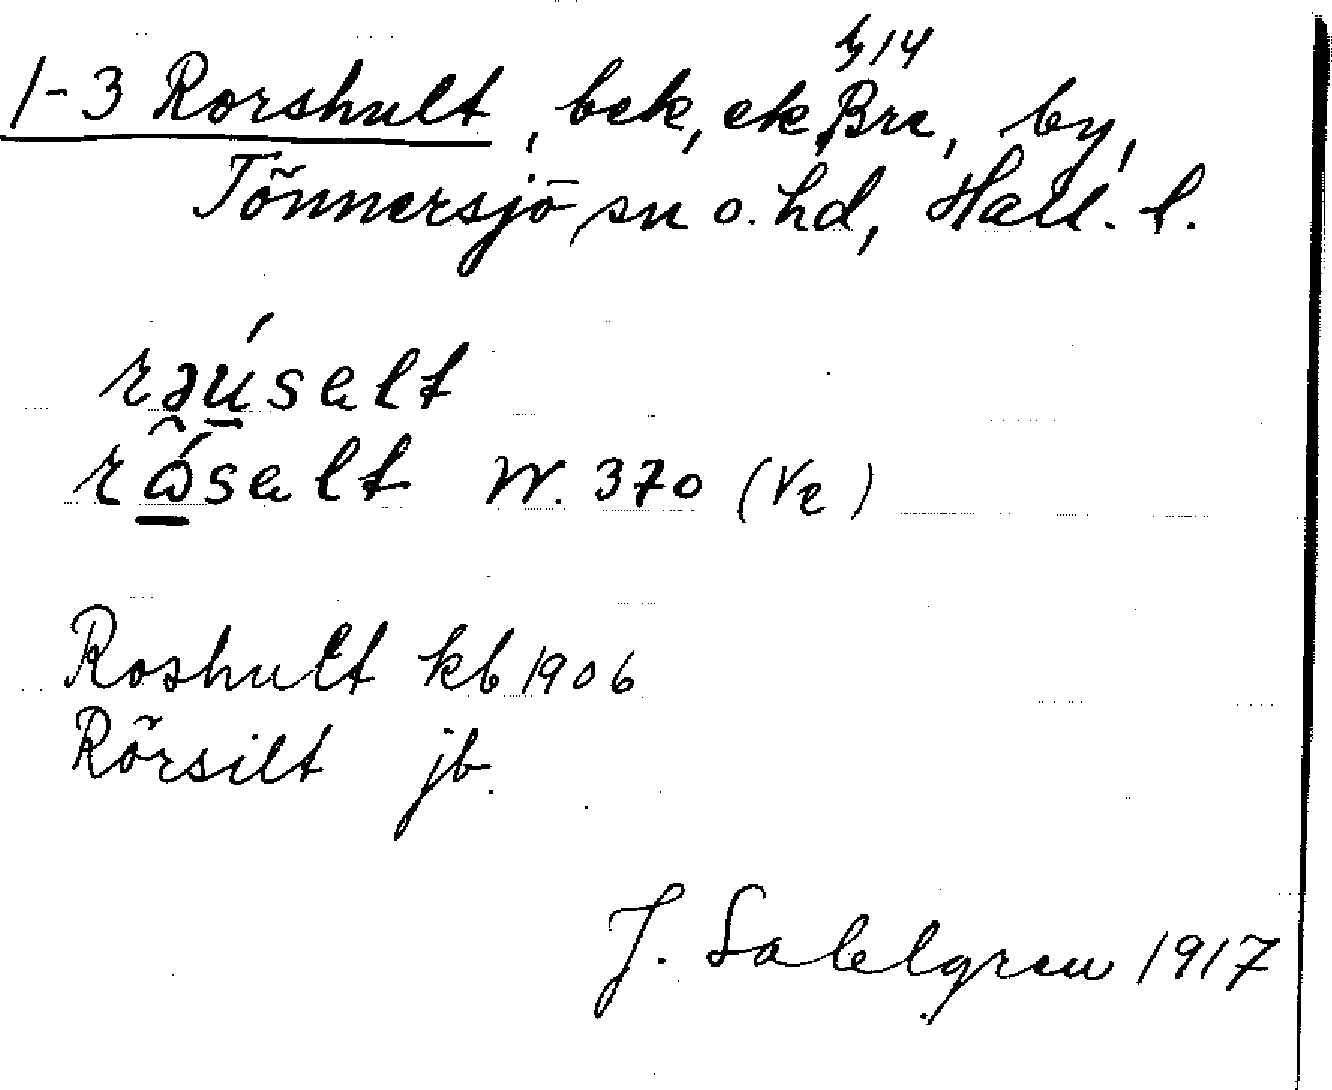 h 14
1-3 Rorshult, bek, ek, Bre, by,
Tönnersjö sn o. hd, Hall. l.
rəúsalt
rɷ̂́salt W. 370 (Ve)
Roshult kb 1906
Rörsilt jb.
J. Sahlgren 1917